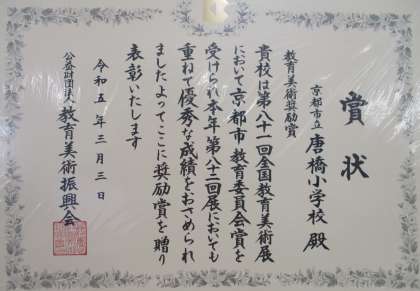 賞状
教育美術奨励賞
京都市立唐橋小学校殿
貴校は第八十一回全国教育美術展
において京都市教育委員会賞を
受けられ本年第八十二回展においても
重ねて優秀な成績をおさめられ
ましたよってここに奨励賞を贈り
表彰いたします
令和五年三月三日
公益財団法人教育美術振興会